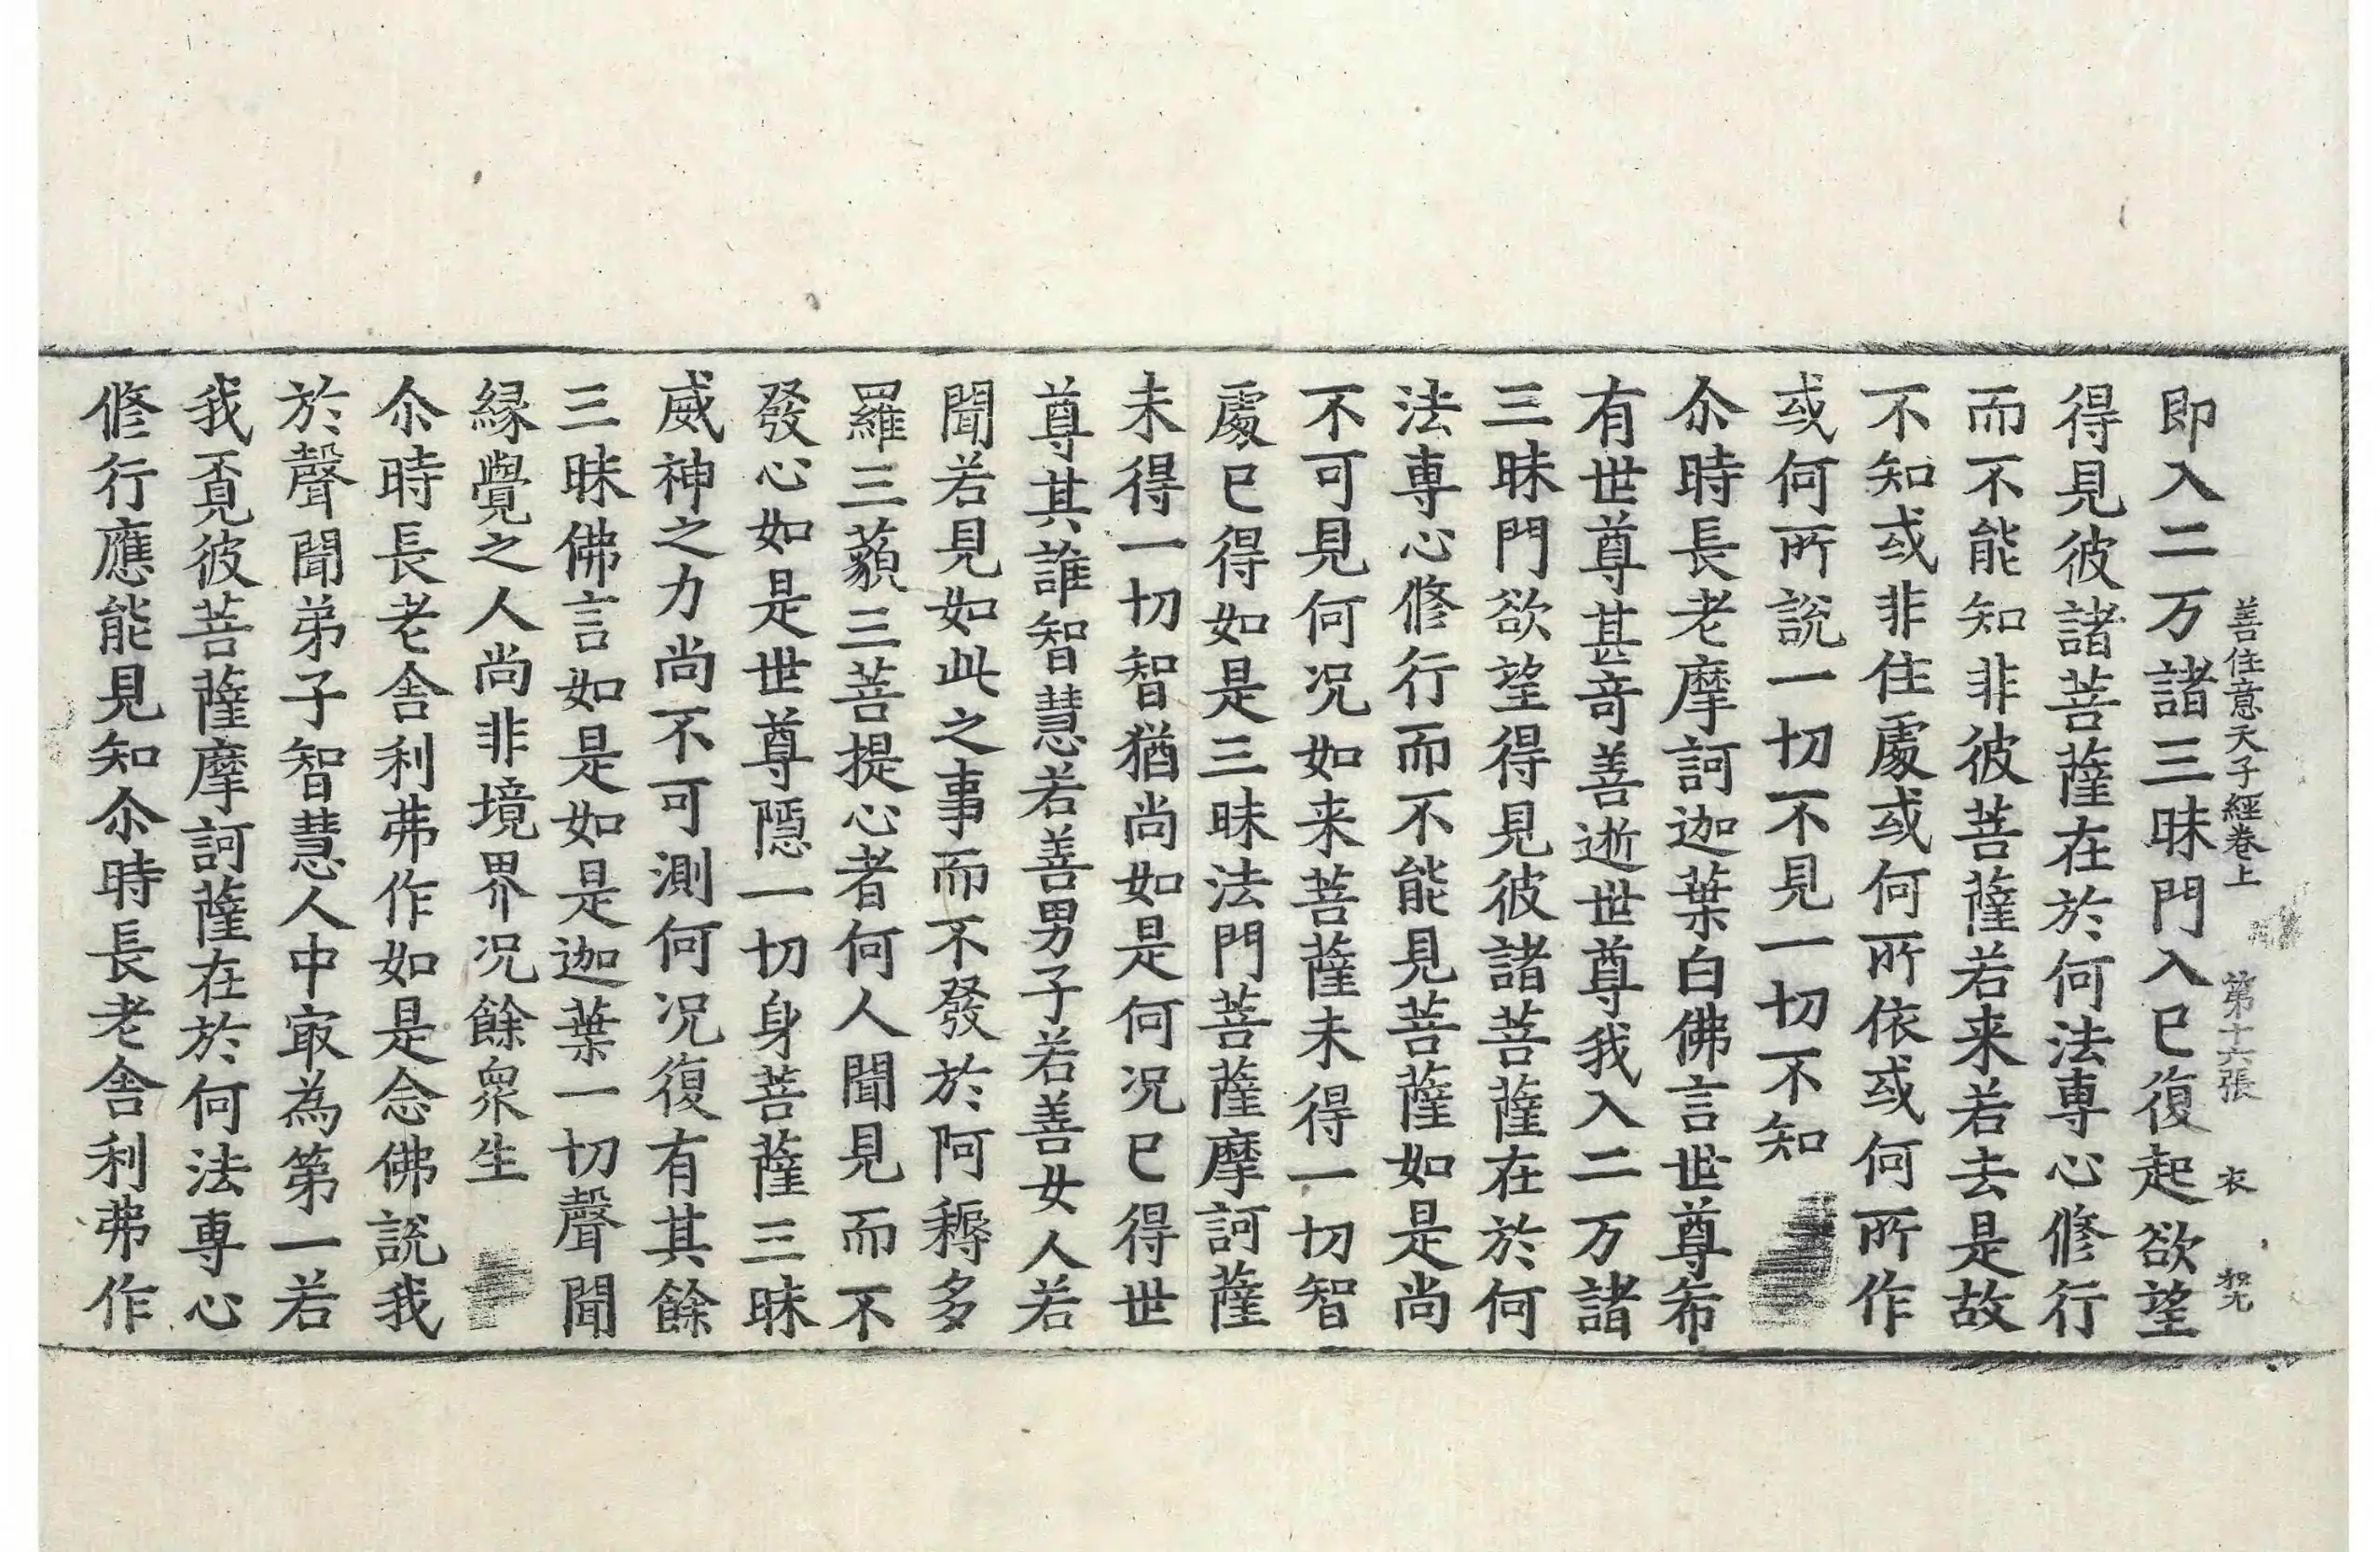 善住意天子經卷上　第十六張　衣
即入二万諸三昧門入已復起欲望
得見彼諸菩薩在於何法專心修行
而不能知非彼菩薩若来若去是故
不知或非住處或何所依或何所作
或何所說一切不見一切不知
尒時長老摩訶迦葉白佛言世尊希
有世尊甚奇善逝世尊我入二万諸
三昧門欲望得見彼諸菩薩在於何
法專心修行而不能見菩薩如是尚
不可見何况如来菩薩未得一切智
處已得如是三昧法門菩薩摩訶薩
未得一切智猶尚如是何况已得世
尊其誰智慧若善男子若善女人若
聞若見如此之事而不發於阿耨多
羅三藐三菩提心者何人聞見而不
發心如是世尊隱一切身菩薩三昧
威神之力尚不可測何况復有其餘
三昧佛言如是如是迦葉一切聲聞
縁覺之人尚非境界况餘衆生
尒時長老舍利弗作如是念佛說我
於聲聞弟子智慧人中冣為第一若
我覓彼菩薩摩訶薩在於何法專心
修行應能見知尒時長老舍利弗作